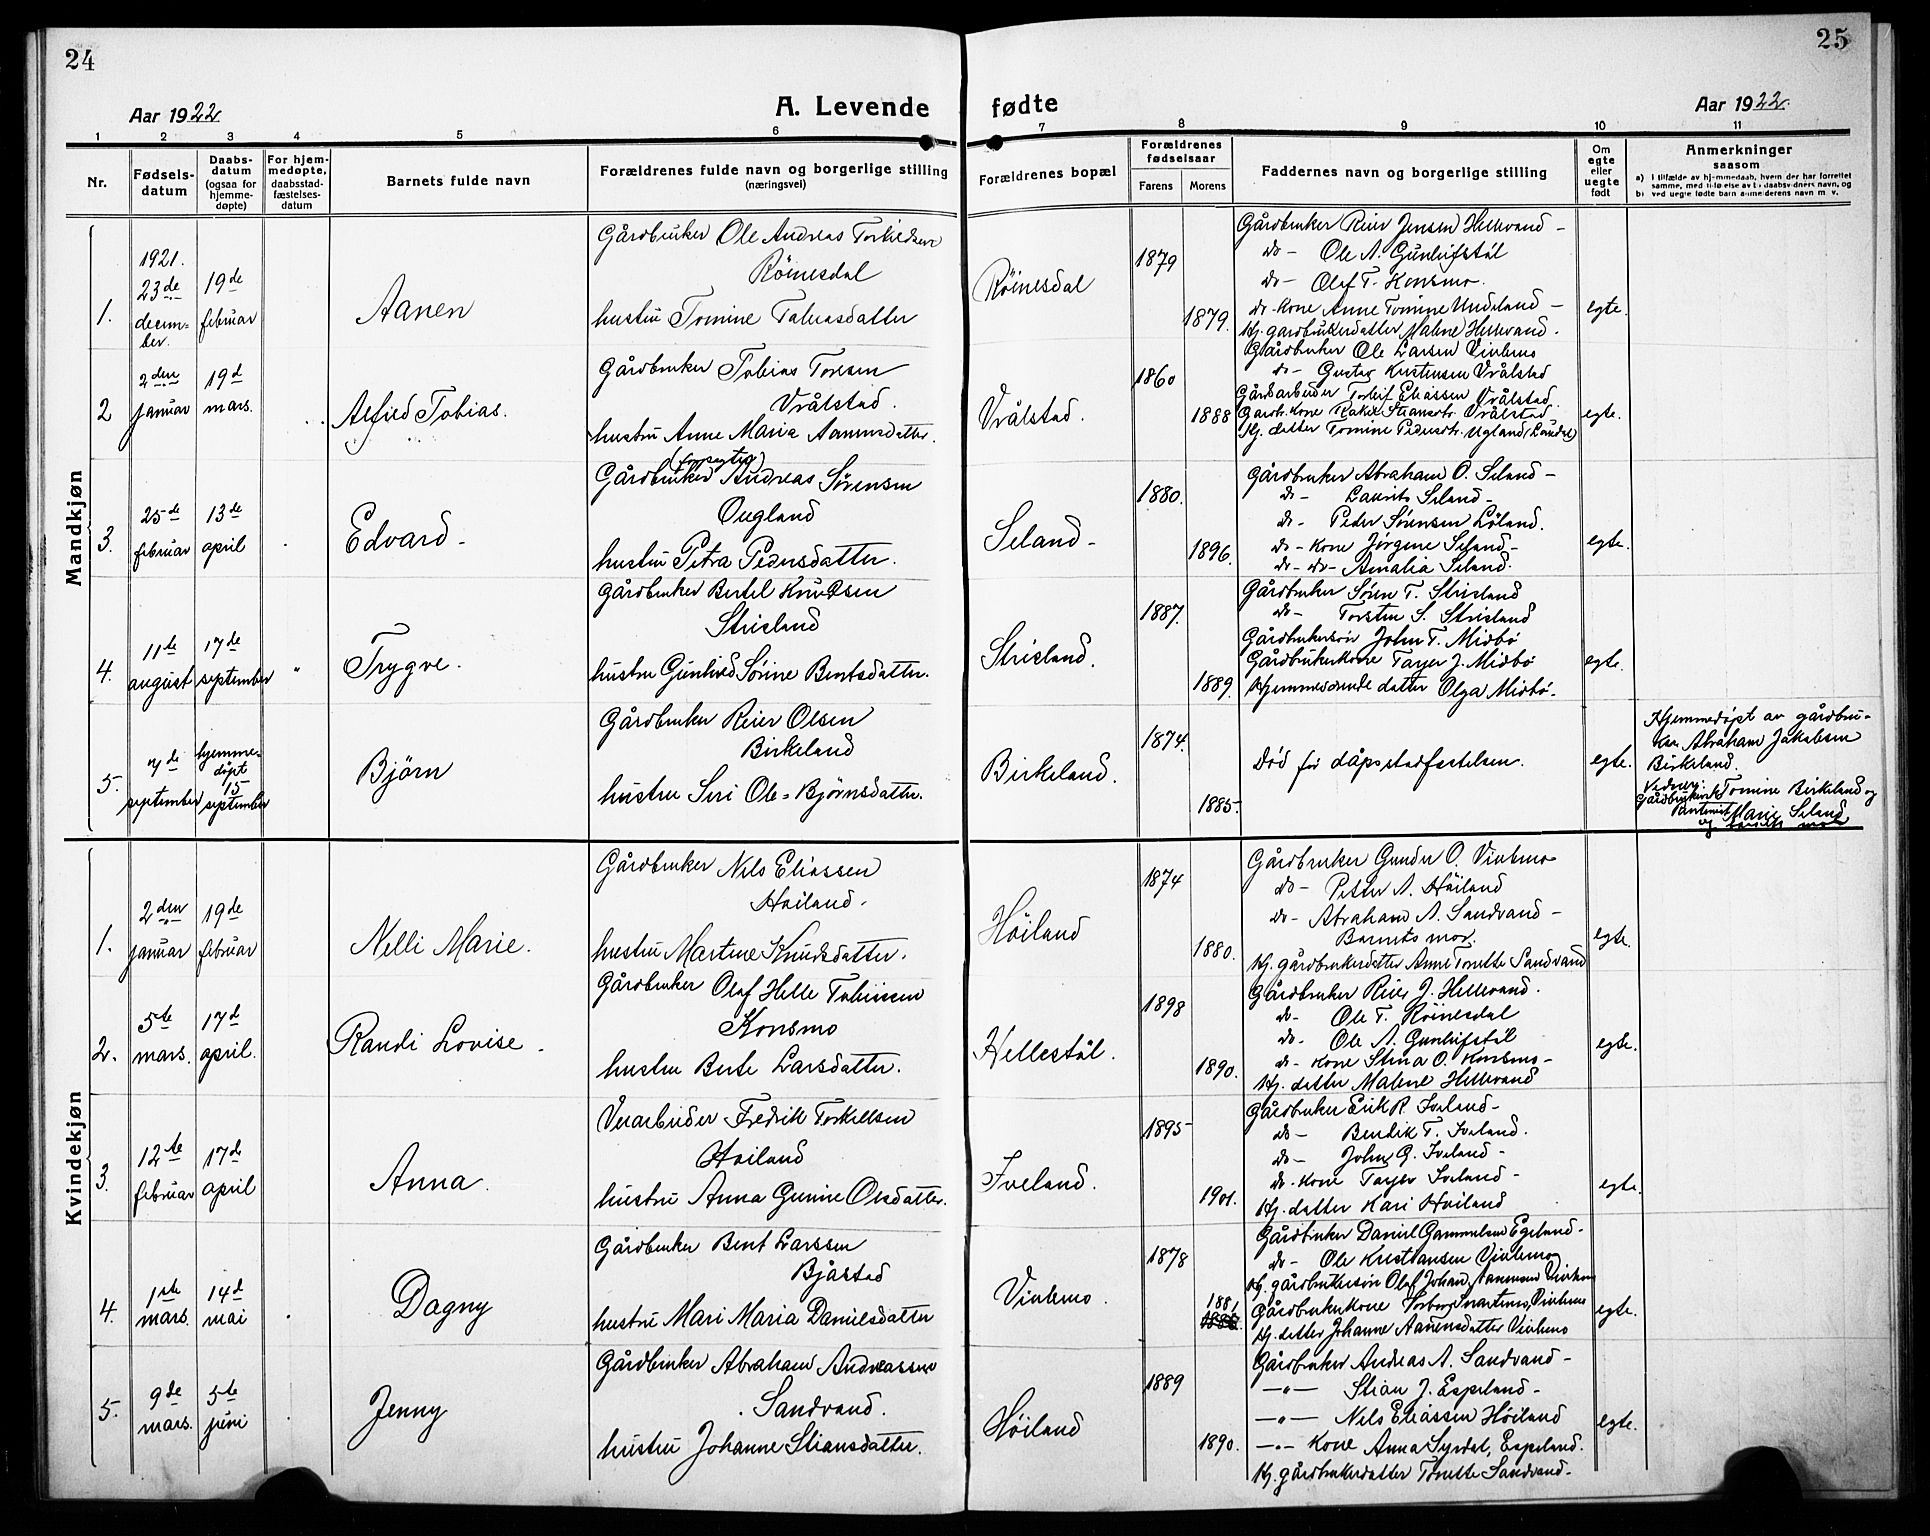 24
25
Aar 1922
A. Levende fødte
Aar 1922.
1 2 3 4 5 6 7 8 9 10 11
Nr.
Fødsels-
datum
Daabs-
datum
(ogsaa for
hjemme-
døpte)
For hjem-
medøpte,
daabsstad-
fæstelses-
datum
Barnets fulde navn
Forældrenes fulde navn og borgerlige stilling
(næringsvei)
Forældrenes bopæl
Forældrenes
fødselsaar
Farens
Morens
Faddernes navn og borgerlige stilling
Om
egte
eller
uegte
født
Anmerkninger
saasom
a) i tilfælde av hjemmedaab, hvem der har forrettet
samme, med tilføielse av to daabsvidners navn, og
b) ved uegte fødte barn anmelderens navn m. v.
Mandkjøn
1.
1921.
23de
decem-
ber.
19de
februar
Aanen
Gårdbruker Ole Andreas Torkildsen
Röinesdal
hustru Tomine Tobiasdatter
Röinesdal
1879
1879.
Gårdbruker Reier Jensen Hellevand -
do - Ole A. Gunleifstöl
do - Olaf T. Konsmo.
do - Kone Anne Tomine Undeland -
Hj. gårdbrukerdatter Malene Hellevand.
egte.
2
2den
januar
19d
mars.
Alfred Tobias.
Gårdbruker Tobias Torsen
Vrålstad.
hustru Anne Maria Aanensdatter.
Vrålstad.
1860
1888
Gårdbruker Ole Larsen Viblemo
do - Gustav Kristensen Vrålstad
Gårdarbeider Torleif Eliassen Vrålstad.
Gårdb. Kone Rakel Stiansdtr. Vrålstad
Hj. datter Tomine Pedersdtr. Ugland (Laudal)
egte.
3.
25de
februar
13de
april
Edvard -
(forpagter)
Gårdbruker Andreas Sörensen
Ougland
hustru Petra Pedersdatter.
Seland -
1880.
1896.
Gårdbruker Abraham O. Seland -
do - Laurits Seland -
do - Peder Sörensen Löland.
do - Kone Jörgine Seland -
do - do - Amalia Seland.
egte.
4.
11te
august
17de
september
"
Trygve.
Gårdbruker Bertel Knudsen
Strisland
hustru Gunhild Sörine Bentsdatter.
Strisland.
1887.
1889.
Gårdbruker Sören T. Strisland
do - Torsten S. Strisland
Gårdbrukersön John T. Midbö
Gårdbrukerkone Tarjer J. Midbö
Hjemmeværende datter Olga Midbö -
egte.
5.
7de
september
hjemme-
döpt
15
september
Björn
Gårdbruker Reier Olsen
Birkeland
hustru Siri Ole-Björnsdatter.
Birkeland.
1874.
1885-
Död för dåpsstadfestelsen.
egte.
Hjemmedöpt av gårdbru-
ker Abraham Jakobsen
Birkeland.
Vidner:
Gårdbrukerk. Tomine Birkeland og
Marie Seland
og barnets mor
Kvindekjøn
1.
2den
januar
19de
februar
Nelli Marie.
Gårdbruker Nils Eliassen
Höiland.
hustru Martine Knudsdatter.
Höiland
1874
1880.
Gårdbruker Gunder O. Viblemo
do - Peder A. Höiland
do - Abraham A. Sandvand -
Barnets mor.
Hj. gårdbrukerdatter Anne Tonette Sandvand
egte.
2.
5te
mars.
17d
april.
Randi Lovise -
Gårdbruker Olaf Helle Tobiassen
Konsmo
hustru Berte Larsdatter.
Hellestöl.
1898
1890.
Gårdbruker Reier J. Hellevand.
do - Ole T. Röinesdal
do - Ole A. Gunleifstöl
do - Kone Stina O. Konsmo -
Hj. datter Malene Hellevand
egte.
3.
12te
februar
17de
april
Anna.
Veiarbeider Fredrik Torkelsen
Höiland
hustru Anna Gurine Olsdatter.
Iveland.
1895-
1901.
Gårdbruker Eirik R. Iveland -
do - Bendik T. Iveland.
do - John G. Iveland -
do - Kone Tarjer Iveland -
Hj. datter Kari Höiland
egte.
4.
1ste
mars.
14d
mai
Dagny
Gårdbruker Bent Larssen
Bjåstad
hustru Mari Maria Danielsdatter
Viblemo.
1878
1881
Gårdbruker Daniel Gammelsen Egeland -
do - Ole Kristiansen Viblemo
Hj. gårdbrukersön Olaf Johan Aanensen Viblemo
Gårdbrukerkone Torborg Martinus. Viblemo
Hj. datter Johanne Aanensdatter Viblemo
egte.
5.
9de
mars.
5te
juni
Jenny
Gårdbruker Abraham Andreassen
Sandvand.
hustru Johanne Stiansdatter.
Höiland
1889
1890.
Gårdbruker Andreas A. Sandvand -
-"- Stian J. Espeland -
-"- Nils Eliassen Höiland
-"- Kone Anna Syrdal, Espeland.
Hj. gårdbrukerdatter Tonette Sandvand -
egte.